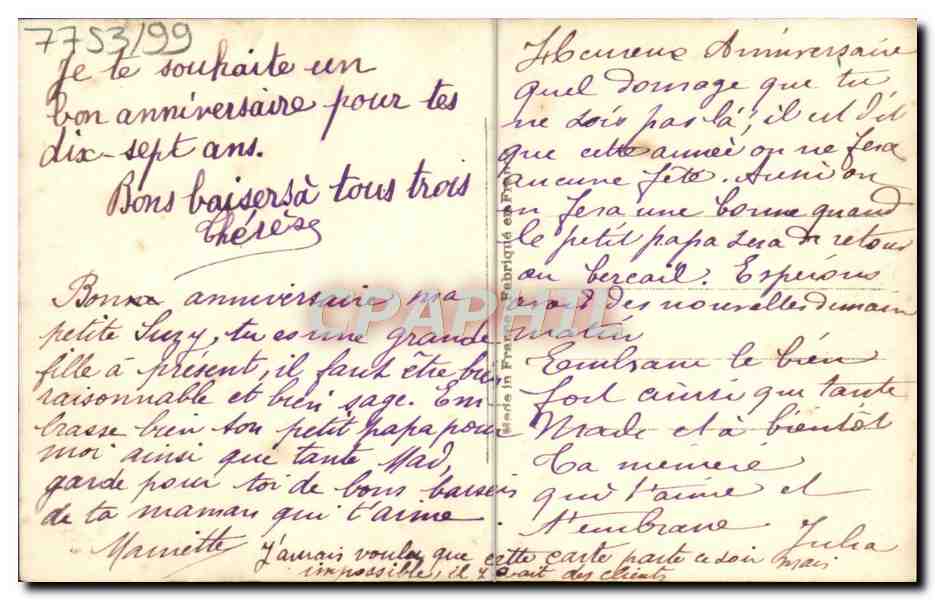 7753/99
Je te souhaite un
bon anniversaire pour tes
dix-sept ans.
Bons baisers à tous trois
Thérèse
Bonne anniversaire ma
petite Suzy, tu es une grande
fille à présent, il faut être bien
raisonnable et bien sage. Em
brasse bien ton petit papa pour
moi ainsi que tante Mad,
garde pour toi de bons baisers
de ta maman qui t'aime
Mariette
J'aurais voulu que cette carte parte ce soir mais
impossible, il y avait des clients
Heureux Anniversaire
quel domage que tu
ne sois pas là, il est dit
que cette année on ne fera
aucune fête. Aussi on
en fera une bonne quand
le petit papa sera de retour
au bercail. Espérons
avoir des nouvelles demain
matin
Embrasse le bien
fort ainsi que tante
Made et à bientôt
Ta mémère
qui t'aime et
t'embrasse Julia
Made in France Fabriqué en France
CPAPHIL